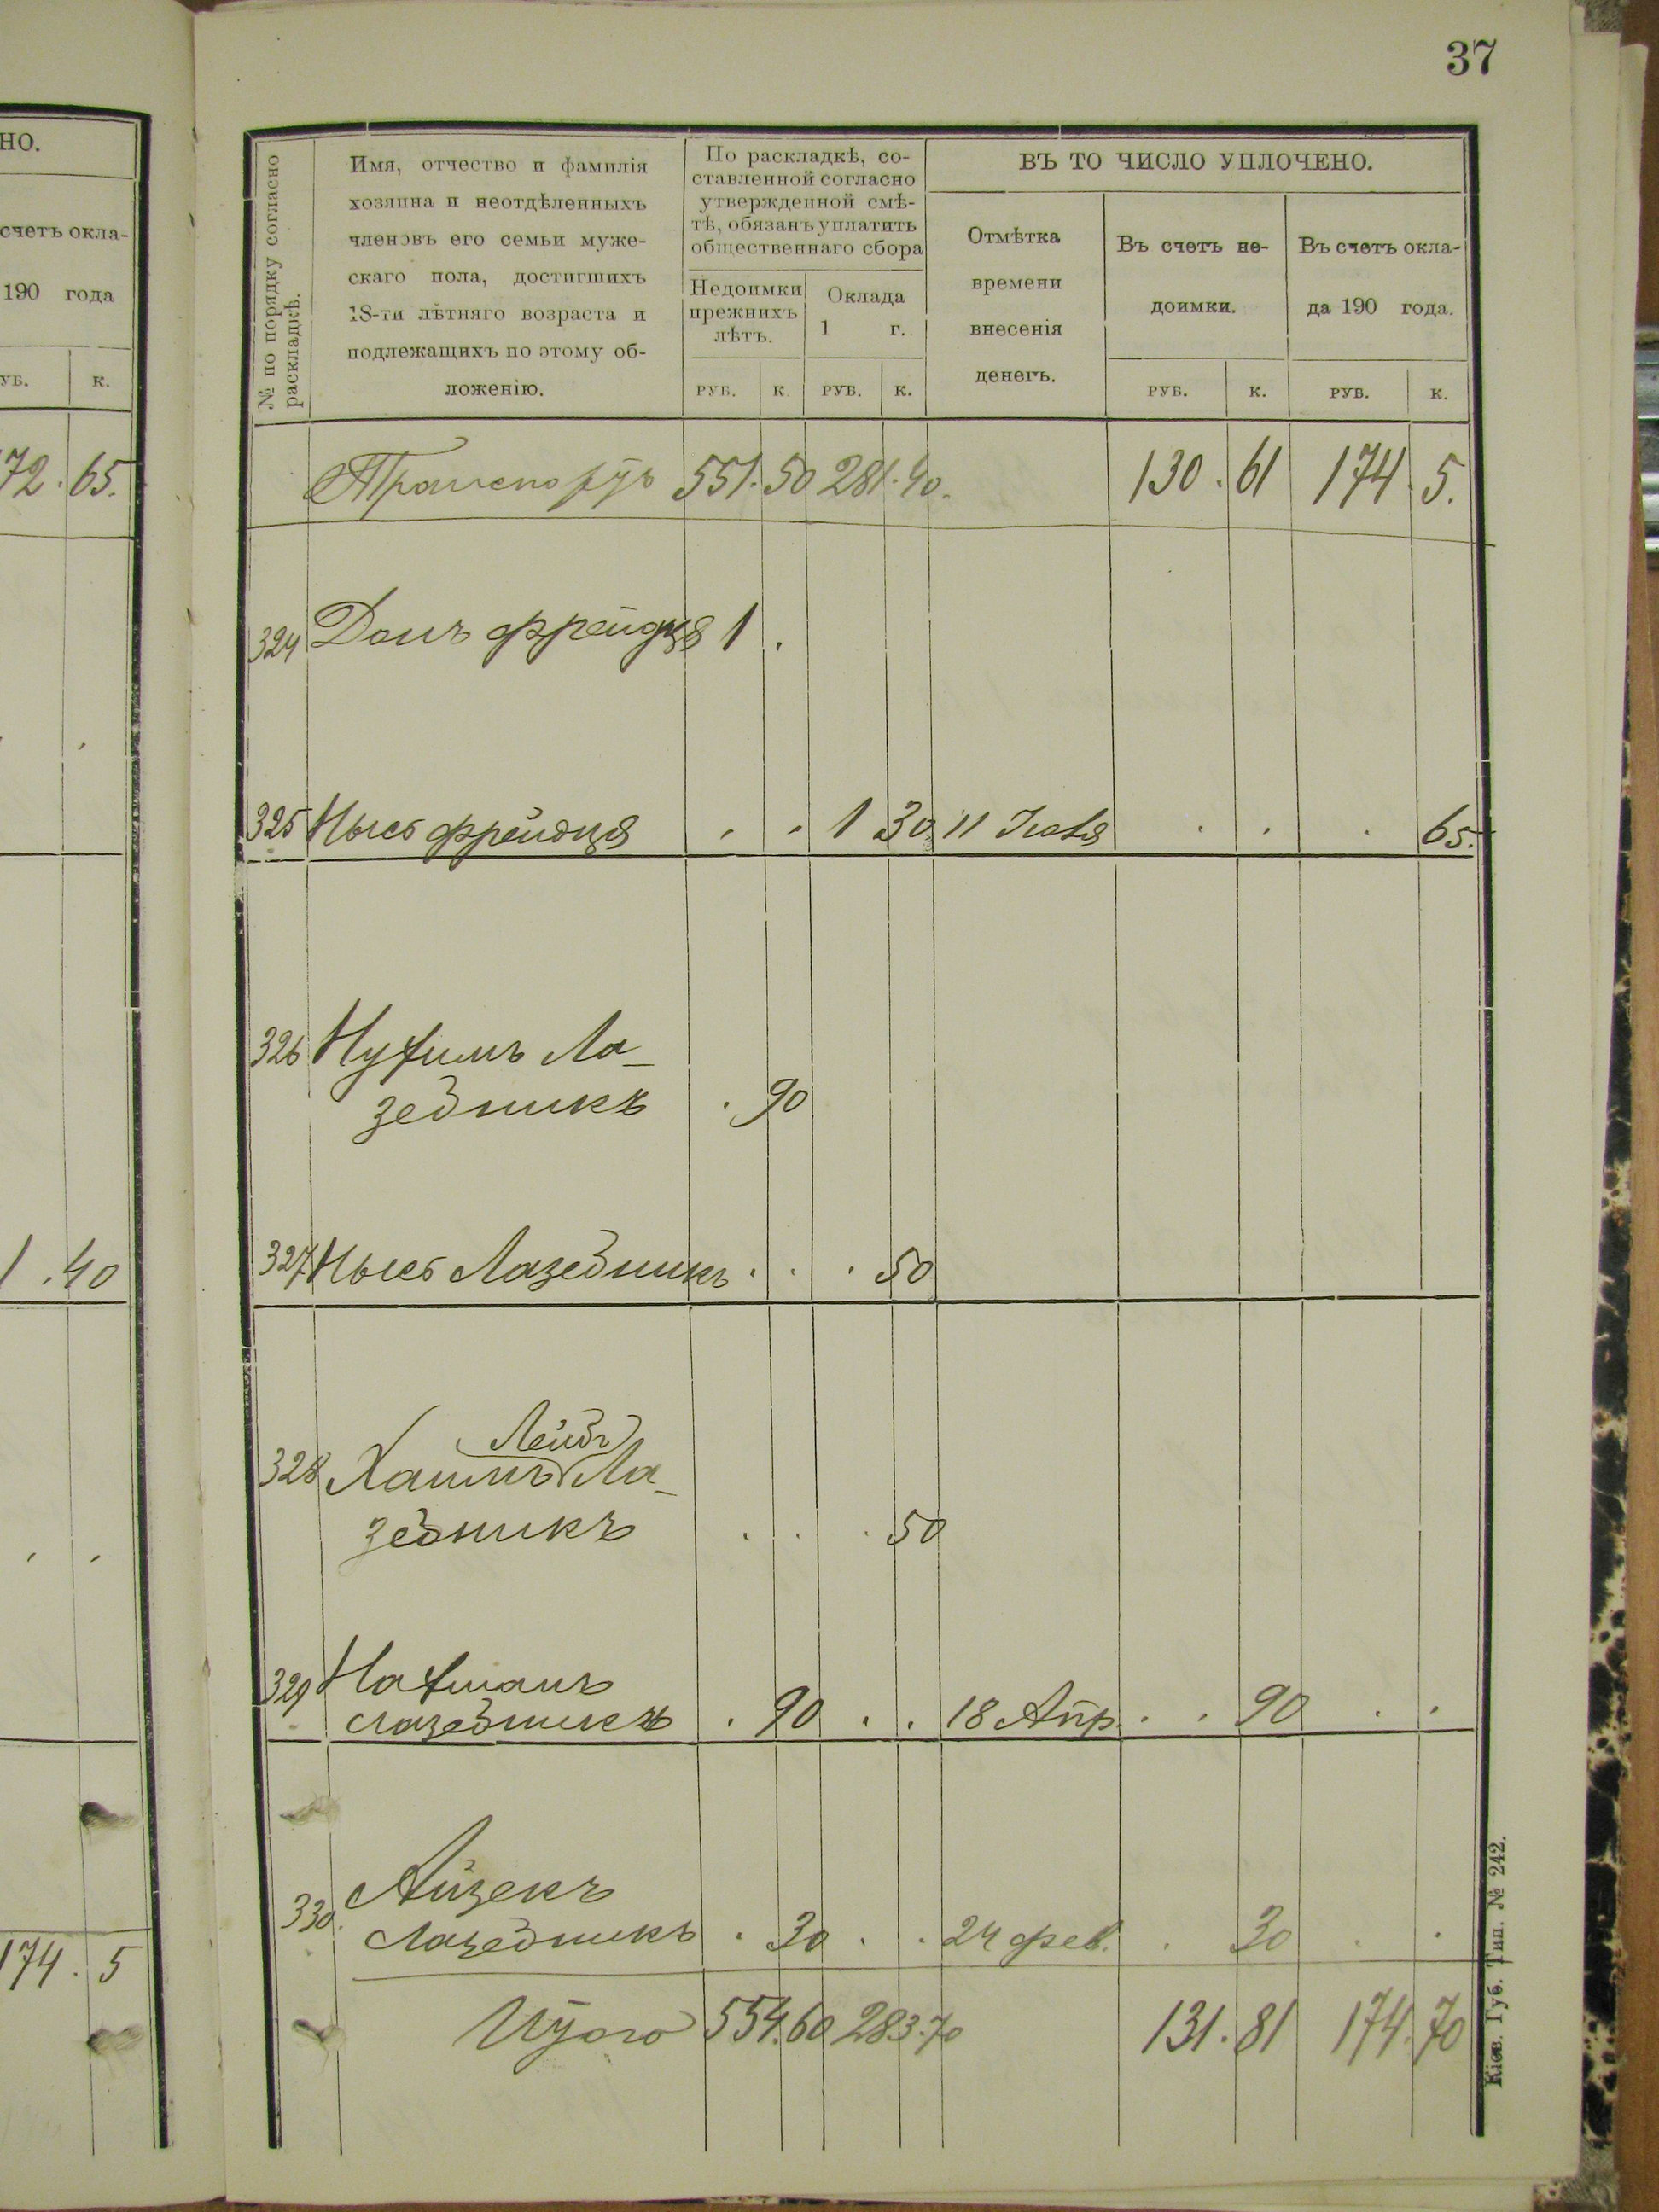 НО.
счетъ окла-
190 года
УБ. К.
72. 65.
1 .40
174. 5
37
№ по порядку согласно
раскладкѣ.
Имя, отчество и фамилія
хозяина и неотдѣленныхъ
членовъ его семьи муже-
скаго пола, достигшихъ
18-ти лѣтняго возраста и
подлежащихъ по этому об-
ложенію.
По раскладкѣ, со-
ставленной согласно
утвержденной смѣ-
тѣ, обязанъ уплатить
общественнаго сбора
Недоимки
прежнихъ
лѣтъ.
Оклада
1 г.
РУБ. К. РУБ. К.
ВЪ ТО ЧИСЛО УПЛОЧЕНО.
Отмѣтка
времени
внесенія
денегъ.
Въ счетъ не-
доимки.
РУБ. К.
Въ счетъ окла-
да 190 года.
РУБ. К.
Транспортъ 551. 50 281. 40. 130. 61 174. 5.
324 1.
325 1 30 11 65.
326 Нухимъ Ла-
зебникъ . 90
327 Лазебникъ . . . 50
Лейбъ
328 Хаимъ Ла-
зебникъ . . . 50
329 Нахманъ
Лазебникъ . 90 . . 18 Апр. . . 90 . .
330. Айзекъ
Лазебникъ . 30 . . 24 фев. . 30 . .
Итого 554. 60 283. 70 131. 81 174. 70
Кіев. Губ. Тип. № 242.